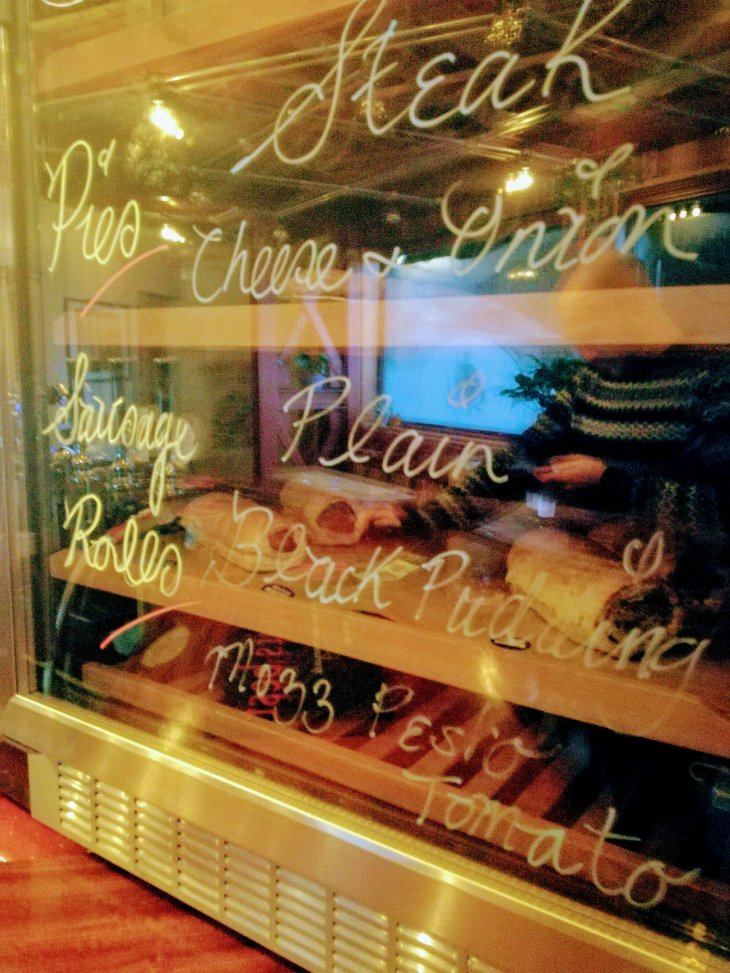 Steak
Pies
Cheese & Onion
Sausage
Rolls
Plain
Black Pudding
Mozz Pesto
Tomato